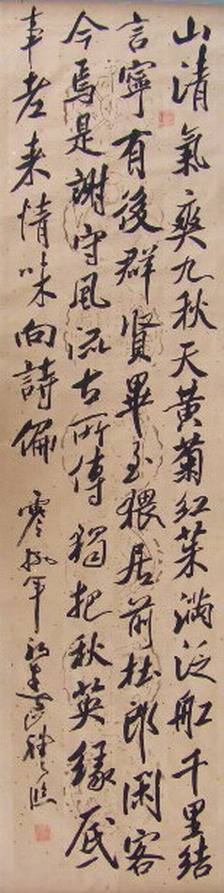 山清氣爽九秋天黃菊紅茱滿泛船千里結
言寧有後群賢畢至猥居前杜郎閑客
今焉是謝守風流古所傳獨把秋英緣底
事老來情味向詩偏